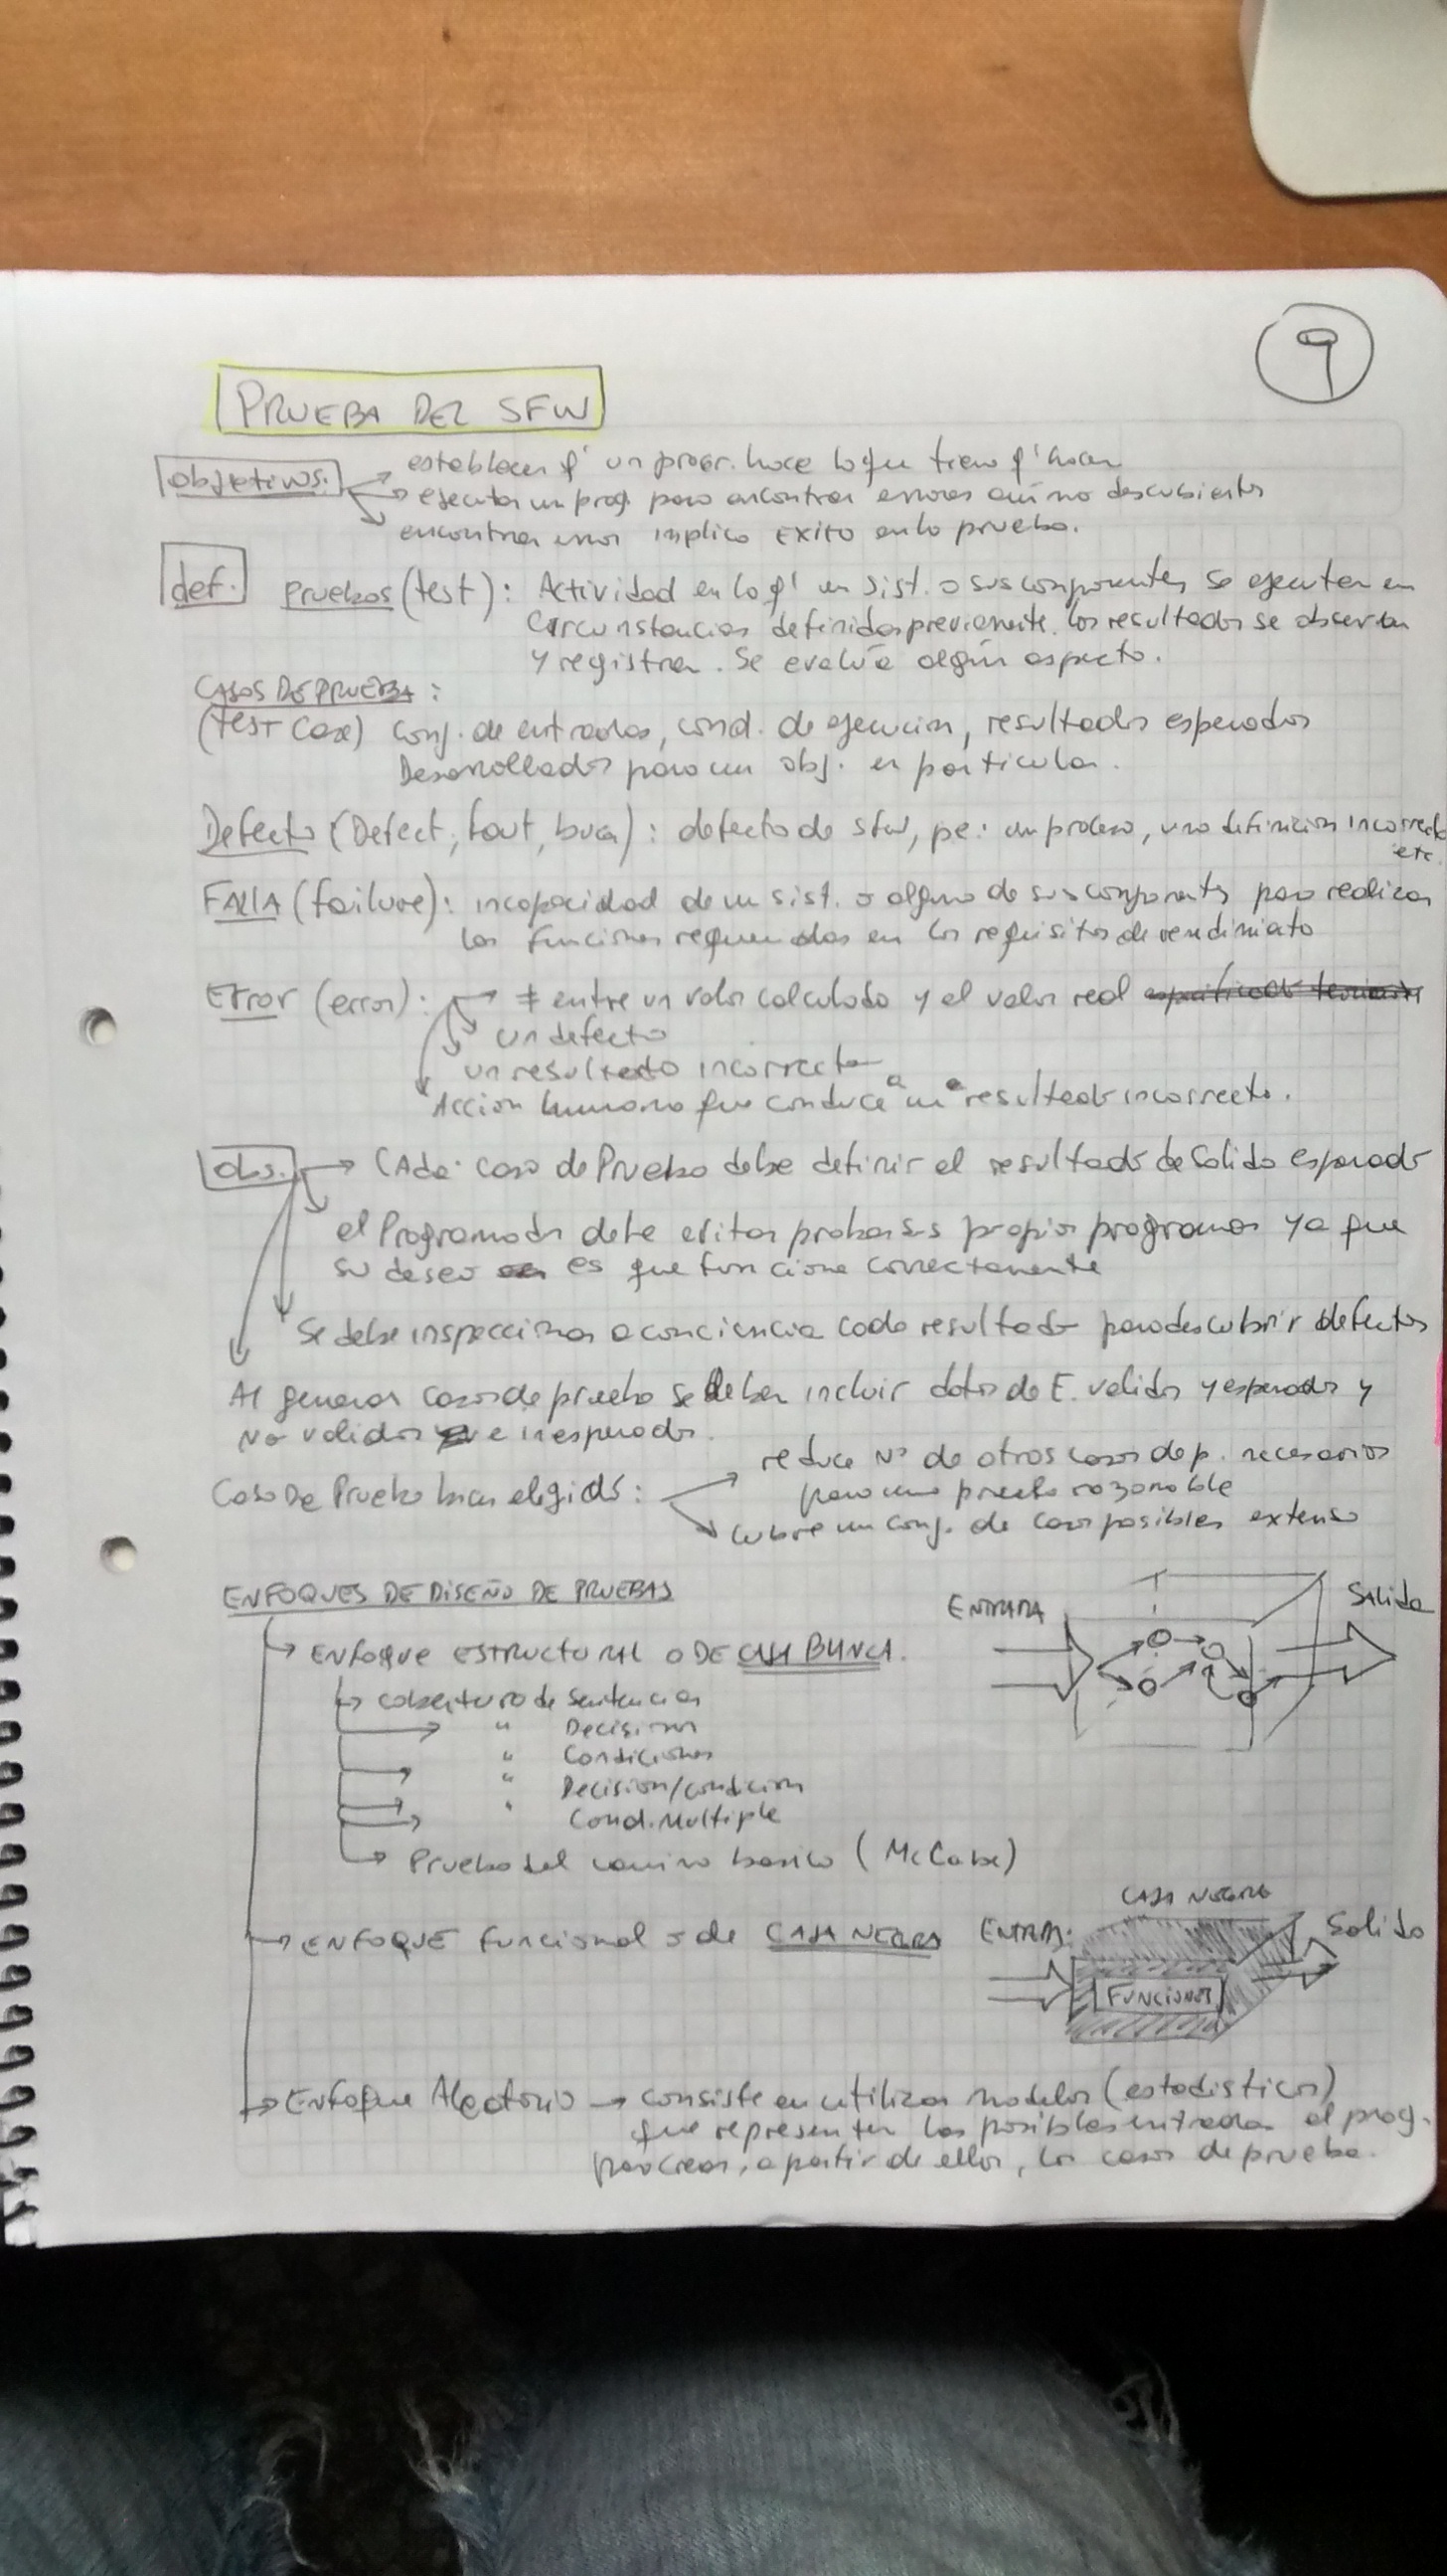 9
PRUEBA DEL SFW
objetivos:
establecer q' un progr. hace lo que tiene q' hacer
ejecutar un prog. para encontrar errores aún no descubiertos
encontrar error implica EXITO en la prueba.
def. Pruebas (test): Actividad en la q' un sist. o sus componentes se ejecutan en
circunstancias definidas previamente. los resultados se observan
y registran. Se evalúa algún aspecto.
CASOS DE PRUEBA:
(test case) conj. de entradas, cond. de ejecución, resultados esperados
Desarrollados para un obj. en particular.
Defecto (Defect, fault, bug): defecto de sfw, pe: un proceso, una definición incorrecta
etc.
FALLA (failure): incapacidad de un sist. o alguno de sus componentes para realizar
las funciones requeridas en los requisitos de rendimiento
Error (error): ≠ entre un valor calculado y el valor real
un defecto
un resultado incorrecto
Acción humana que conduce a un resultado incorrecto.
obs. CAda caso de Prueba debe definir el resultado de Salida esperado
el Programador debe evitar probar sus propios programas ya que
su deseo es que funcione correctamente
Se debe inspeccionar a conciencia cada resultado para descubrir defectos
Al generar casos de prueba se deben incluir datos de E. validos y esperados y
no validos e inesperados.
Caso De Prueba bien elegido:
reduce Nº de otros casos de p. necesarios
para una prueba razonable
cubre un conj. de casos posibles extenso
ENFOQUES DE DISEÑO DE PRUEBAS
ENTRADA
Salida
Enfoque ESTRUCTURAL O DE CAJA BLANCA.
cobertura de Sentencias
" Decisiones
" Condiciones
" Decisión/condición
" Cond. Multiple
Prueba del camino basico (McCabe)
CAJA NEGRA
ENFOQUE Funcional o de CAJA NEGRA
ENTRADA
Salida
FUNCIONES
Enfoque Aleatorio → consiste en utilizar modelos (estadisticos)
que representen las posibles entradas al prog.
para crear, a partir de ellos, los casos de prueba.